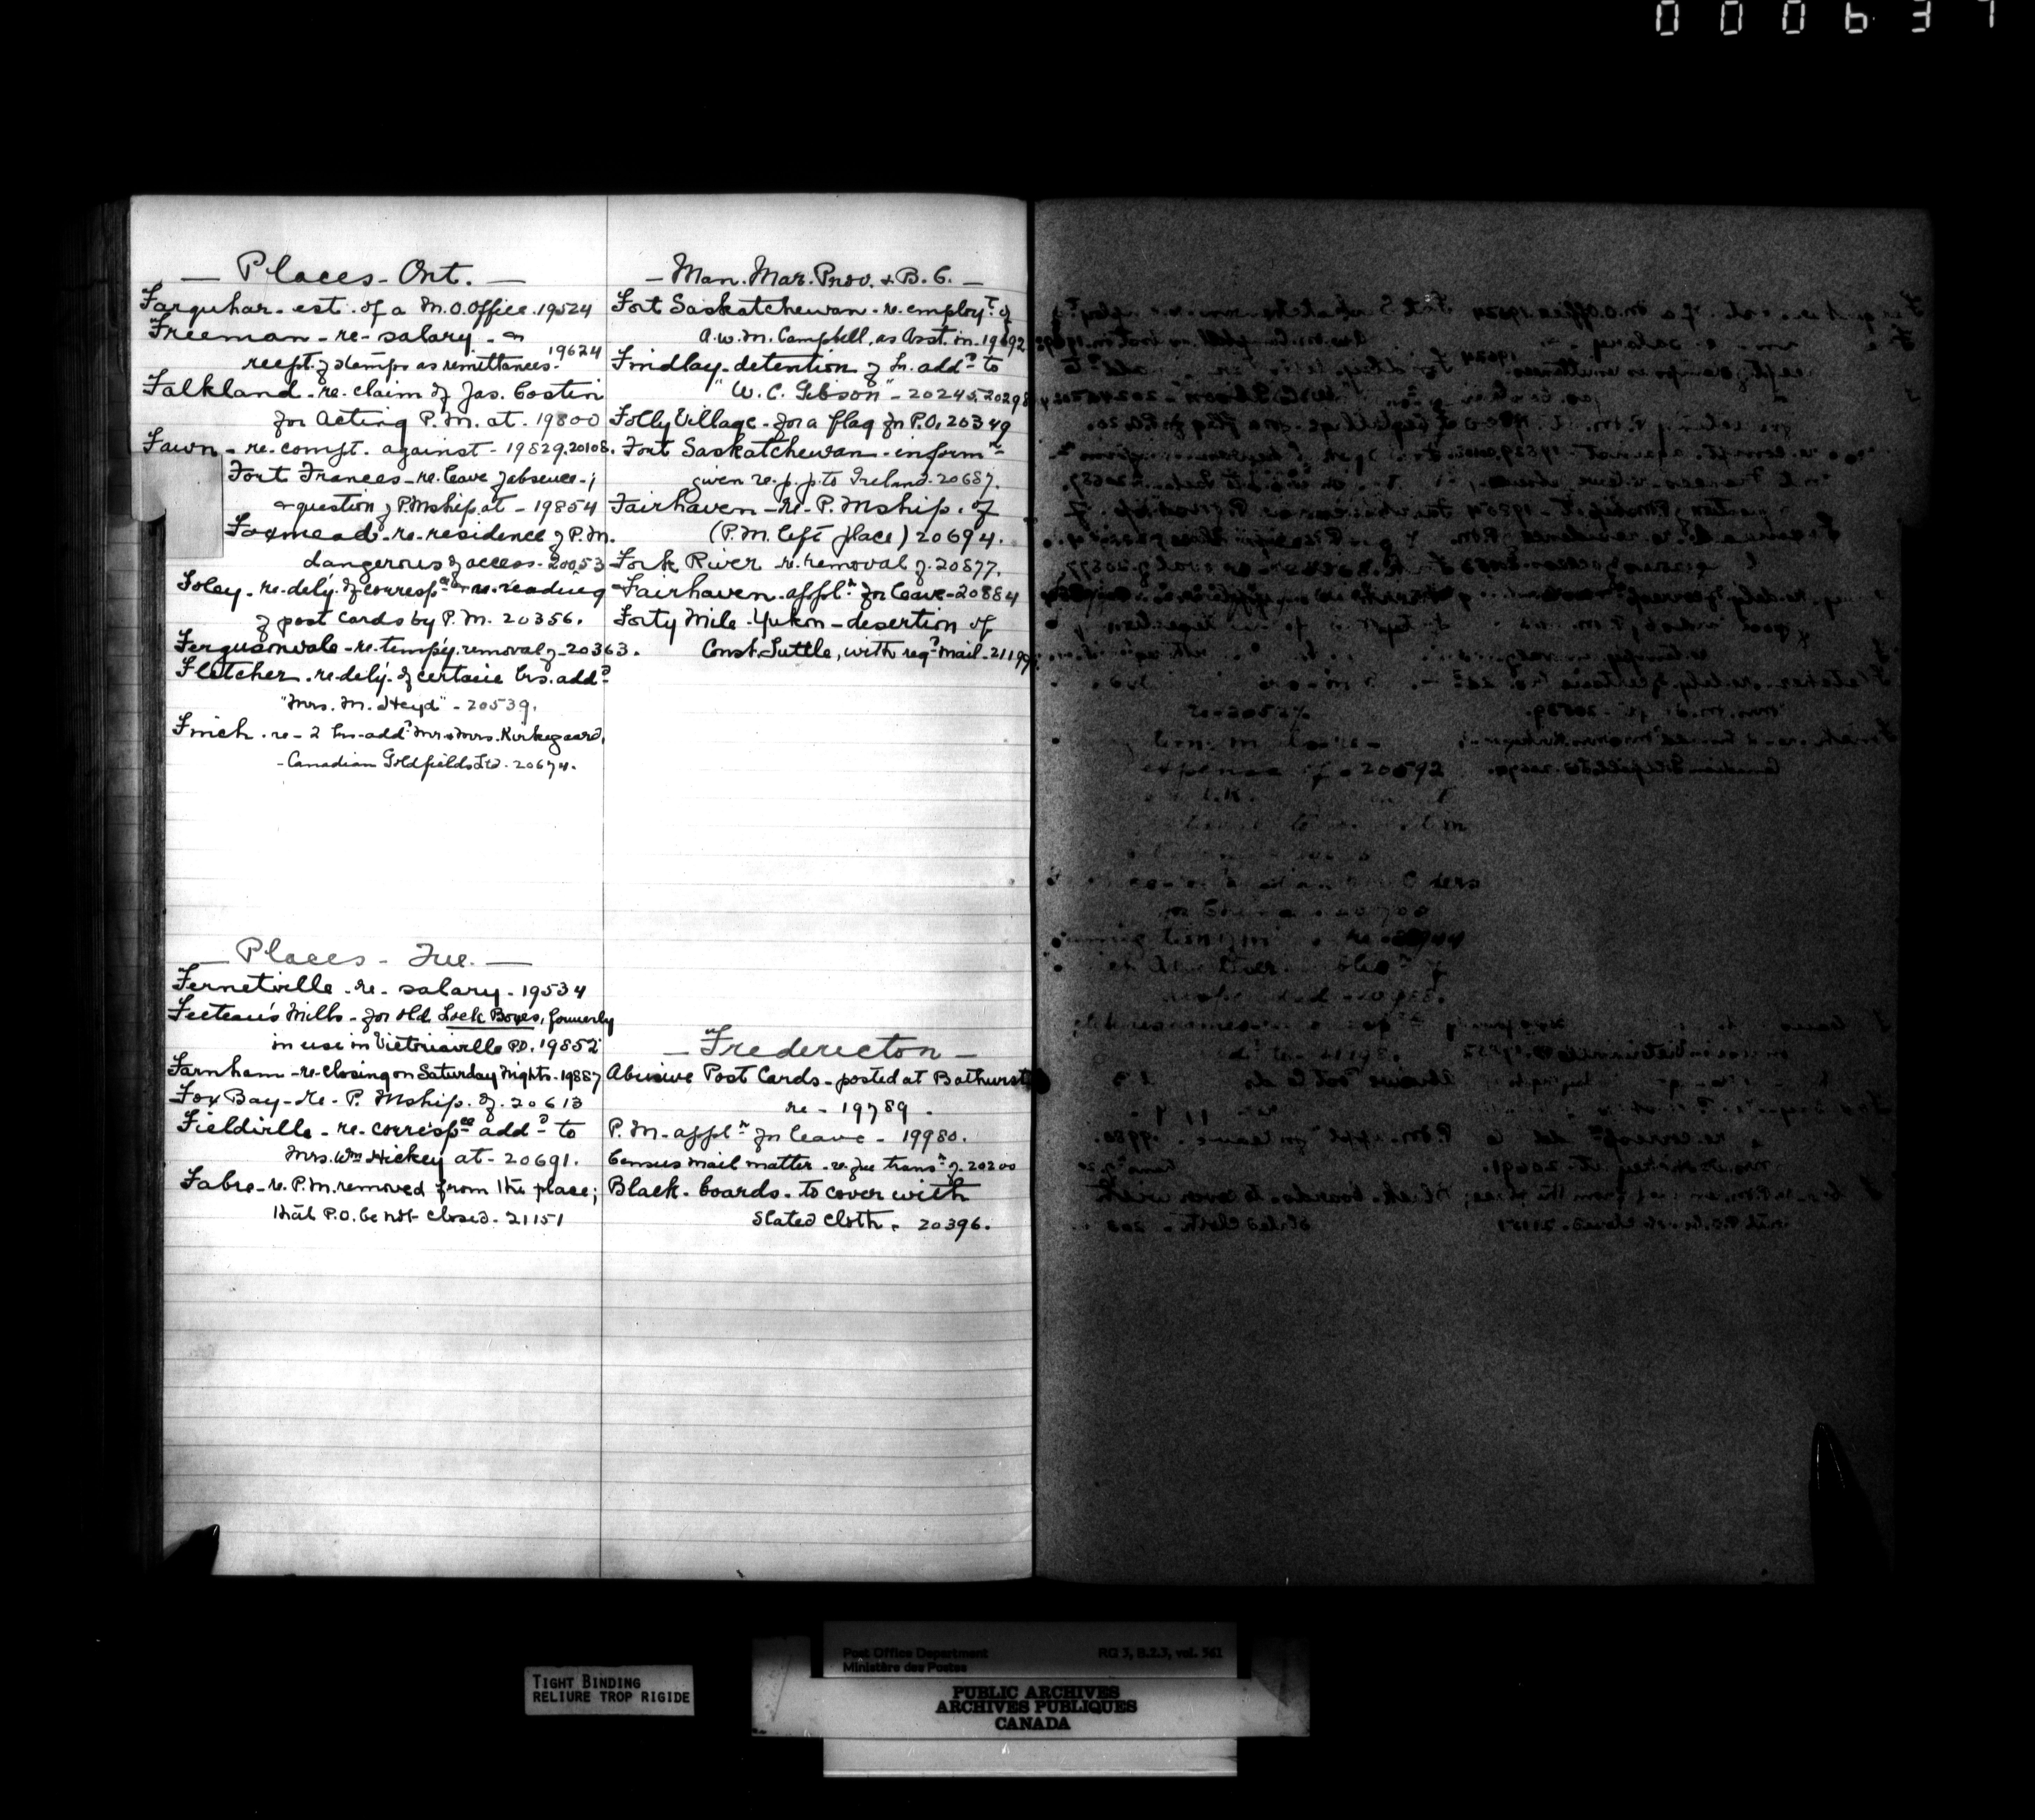 000637
— Places - Ont. —
Farquhar - est. of a M.O. Office. 19524
Freeman - re - salary - &
recpt. of stamps as remittances. 19624
Falkland - re - claim of Jas. Costin
for Acting P.M. at. 19800
Fawn - re. compt. against - 19829. 20108.
Fort Frances - re. leave of absence - ;
& question of P.Mship at - 19854
Foxmead - re. residence of P.M.
dangerous of access - 20053
Foley - re. dely. of corresp ce & re. reading
of post cards by P.M. 20356.
Fergusonvale - re. tempy. removal of - 20363.
Fletcher - re. dely. of certain lrs. add d
"Mrs. M. Heyd" - 20539.
Finch - re - 2 lrs - add d Mr & Mrs. Kirkegaard,
- Canadian Goldfields Ltd. 20674.
— Places - Que. —
Fernetville - re - salary - 19534
Fecteau's Mills - for old Lock Boxes, formerly
in use in Victoriaville P.O. 19852
Farnham - re - closing on Saturday Nights - 19887
Fox Bay - re - P. Mship. of. 20613
Fieldville - re. corresp ce add d to
Mrs. Wm Hickey at - 20691.
Fabre - re. P.M. removed from the place;
that P.O. be not closed - 21151
— Man. Mar. Prov. & B.C. —
Fort Saskatchewan - re. employ t of
A.W.M. Campbell, as Asst. in - 19692
Findlay - detention of lr. add d to
"W. C. Gibson" - 20245. 20298
Folly Village - for a flag for P.O. 20349
Fort Saskatchewan - inform n
given re. p. p. to Ireland. 20687.
Fairhaven - re - P. Mship. of
(P.M. left place) 20694.
Fork River - re. removal of. 20877.
Fairhaven - appl n for leave - 20884
Forty Mile - Yukon - desertion of
Const. Tuttle, with reg d mail -
— Fredericton —
Abusive Post Cards - posted at Bathurst
re - 19789 -
P.M. - appl n for leave - 19980.
Census mail matter - re. free trans n of. 20200
Black - boards - to cover with
Slated cloth - 20396.
TIGHT BINDING
RELIURE TROP RIGIDE
Post Office Department RG 3, B.2.3, vol. 561
Ministère des Postes
PUBLIC ARCHIVES
ARCHIVES PUBLIQUES
CANADA